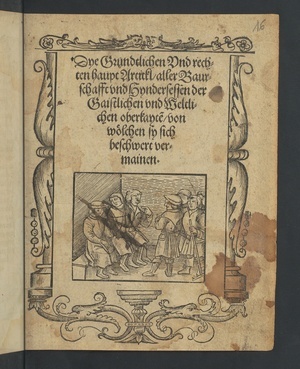 16
Dye Grundtlichen Vnd rech-
ten haupt Artickl / aller Baur-
schafft vnd Hyndersessen der
Gaistlichen vnd Weltli-
chen oberkaytē / von
wölchen sy sich
beschwert ver-
mainen.